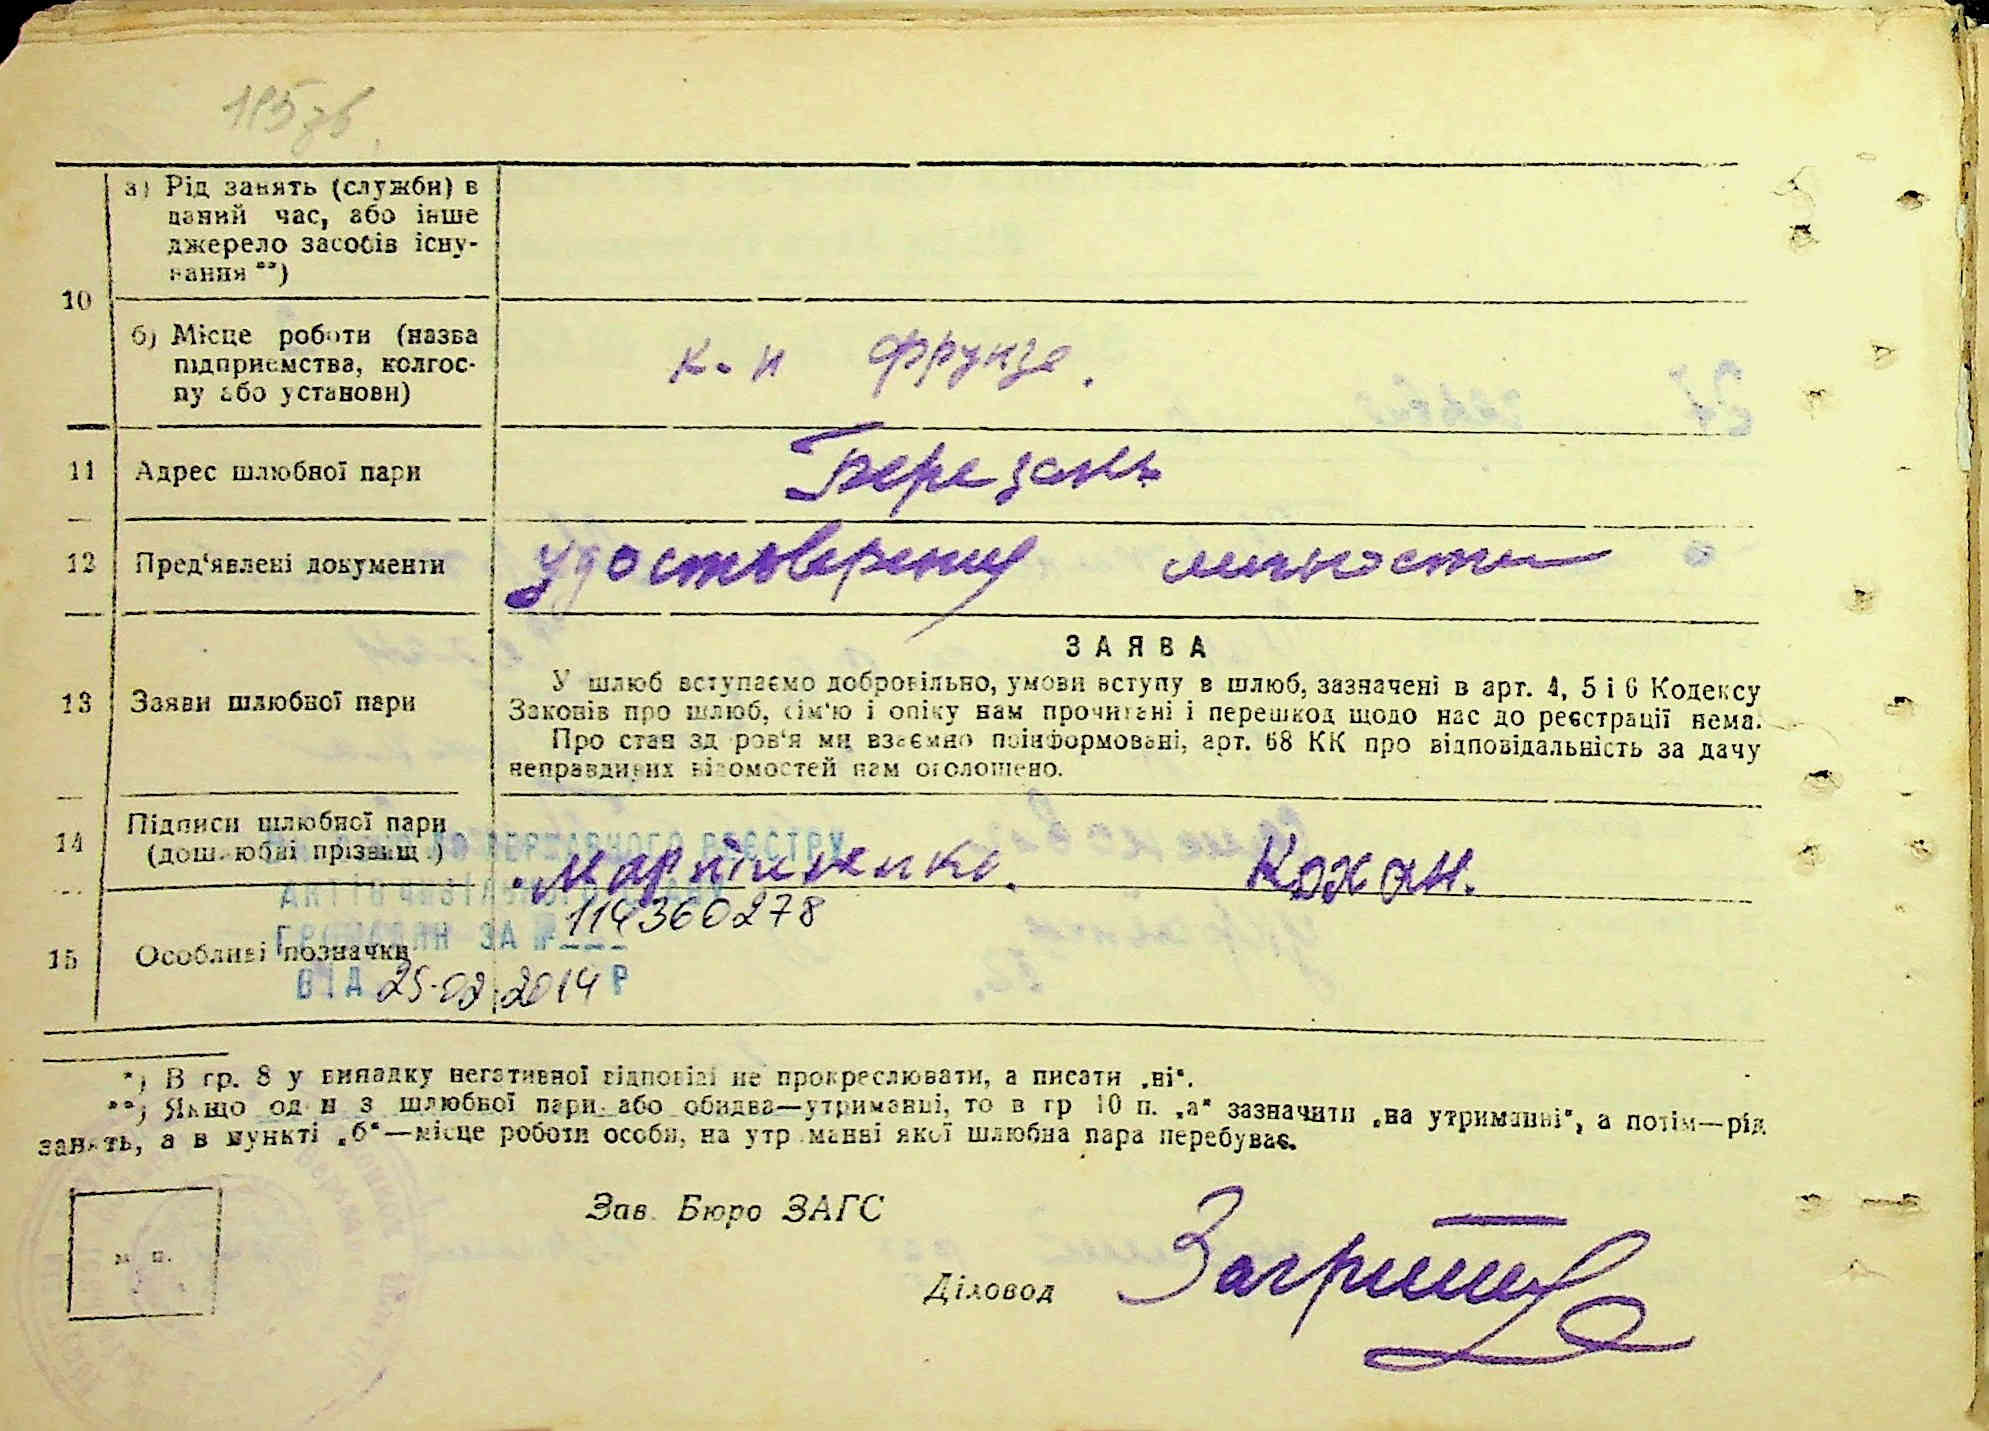 195 зв.
10
а) Рід занять (служби) в
даний час, або інше
джерело засобів існу-
вання **)
б) Місце роботи (назва
підприємства, колгос-
пу або установи)
к-п Фрунзе.
11 Адрес шлюбної пари
Березань
12 Пред‘явлені документи
удостоверения личности
ЗАЯВА
13 Заяви шлюбної пари
У шлюб вступаємо добровільно, умови вступу в шлюб, зазначені в арт. 4, 5 і 6 Кодексу
Законів про шлюб, сім‘ю і опіку нам прочитані і перешкод щодо нас до реєстрації нема.
Про стан здоров‘я ми взаємно поінформовані, арт. 68 КК про відповідальність за дачу
неправдивих відомостей нам оголошено.
14 Підписи шлюбної пари
(дошлюбні прізвищ.)
Мартиненко. Кохан.
державного реєстру
актів цивільного
громадян за № 114360278
15 Особливі позначки
від 25.02.2014 р
*) В гр. 8 у випадку негативної відповіді не прокреслювати, а писати „ні“.
**) Якщо один з шлюбної пари, або обидва—утриманці, то в гр 10 п. „а“ зазначити „на утриманні“, а потім—рід
занять, а в пункті „б“—місце роботи особи, на утриманні якої шлюбна пара перебуває.
м п.
Зав. Бюро ЗАГС
Діловод